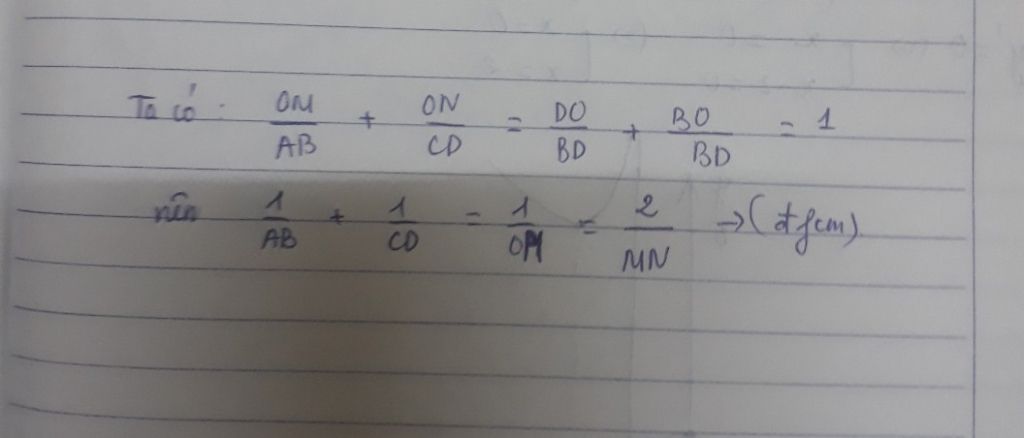 Ta có: OM/AB + ON/CD = DO/BD + BO/BD = 1
nên 1/AB + 1/CD = 1/OM = 2/MN → (đfcm)